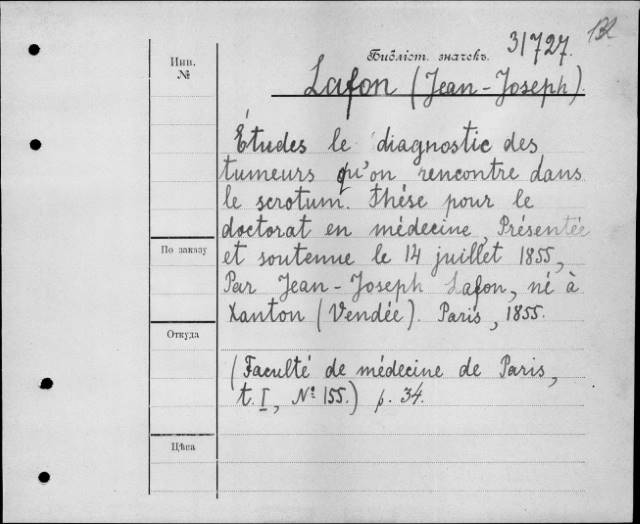 31727.
Библіот. значекъ.
Инв.
№
Lafon (Jean-Joseph).
Études le diagnostic des
tumeurs qu'on rencontre dans
le scrotum. Thése pour le
doctorat en médecine, Présentée
По заказу
et soutenue le 14 juillet 1855,
Par Jean-Joseph Lafon, né à
Xanton (Vendée). Paris, 1855.
Откуда
(Faculté de médecine de Paris,
t. I, № 155.) p. 34.
Цѣна